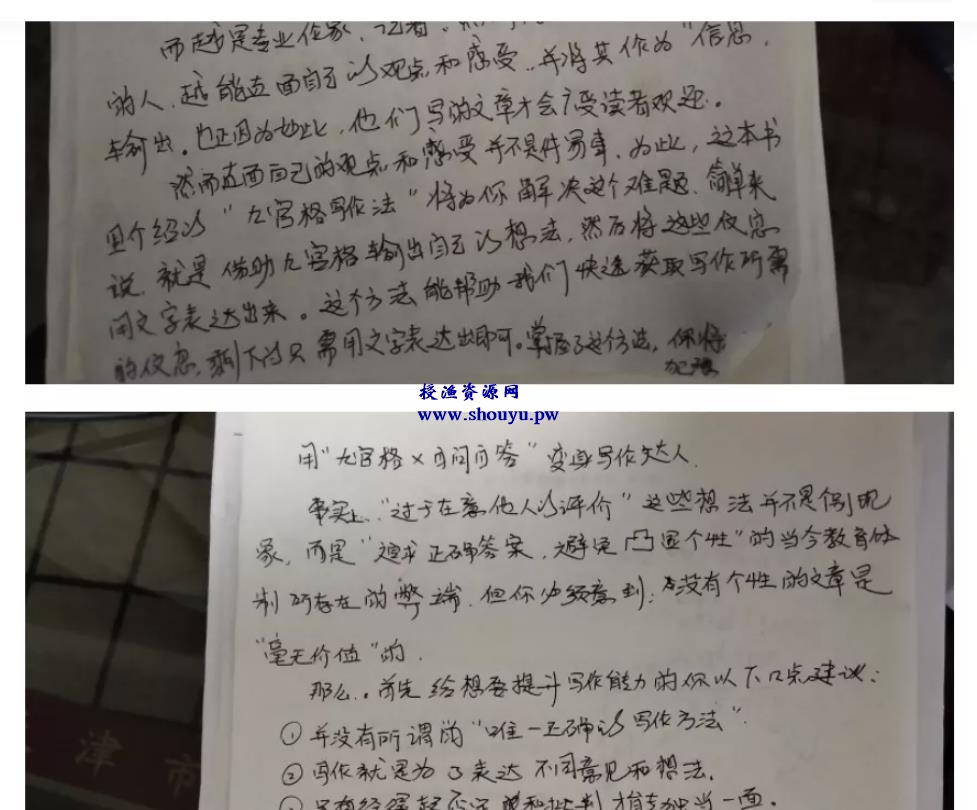 而越是专业作家、记者、
的人，越能直面自己的观点和感受，并将其作为“信息，
输出。也正因为如此，他们写的文章才会广受读者欢迎。
然而直面自己的观点和感受并不是件易事，为此，这本书
里介绍的“九宫格写作法”将为你解决这个难题，简单来
说，就是借助九宫格输出自己的想法，然后将这些信息
用文字表达出来。这个方法能帮助我们快速获取写作所需
的信息，剩下的只需用文字表达出即可。掌握了这个方法，你将
授渔资源网
www.shouyu.pw
用“九宫格×自问自答”变身写作达人.
事实上，“过于在意他人的评价”这些想法并不是个别现
象，而是“追求正确答案，避免凸显个性”的当今教育体
制所存在的弊端，但你必须意到：没有个性的文章是
“毫无价值”的.
那么，首先给想要提升写作能力的你以下口点建议：
① 并没有所谓的“唯一正确的写作方法”.
② 写作就是为了表达不同意见和想法.
只有经得起否定和批判才能独当一面.
津市